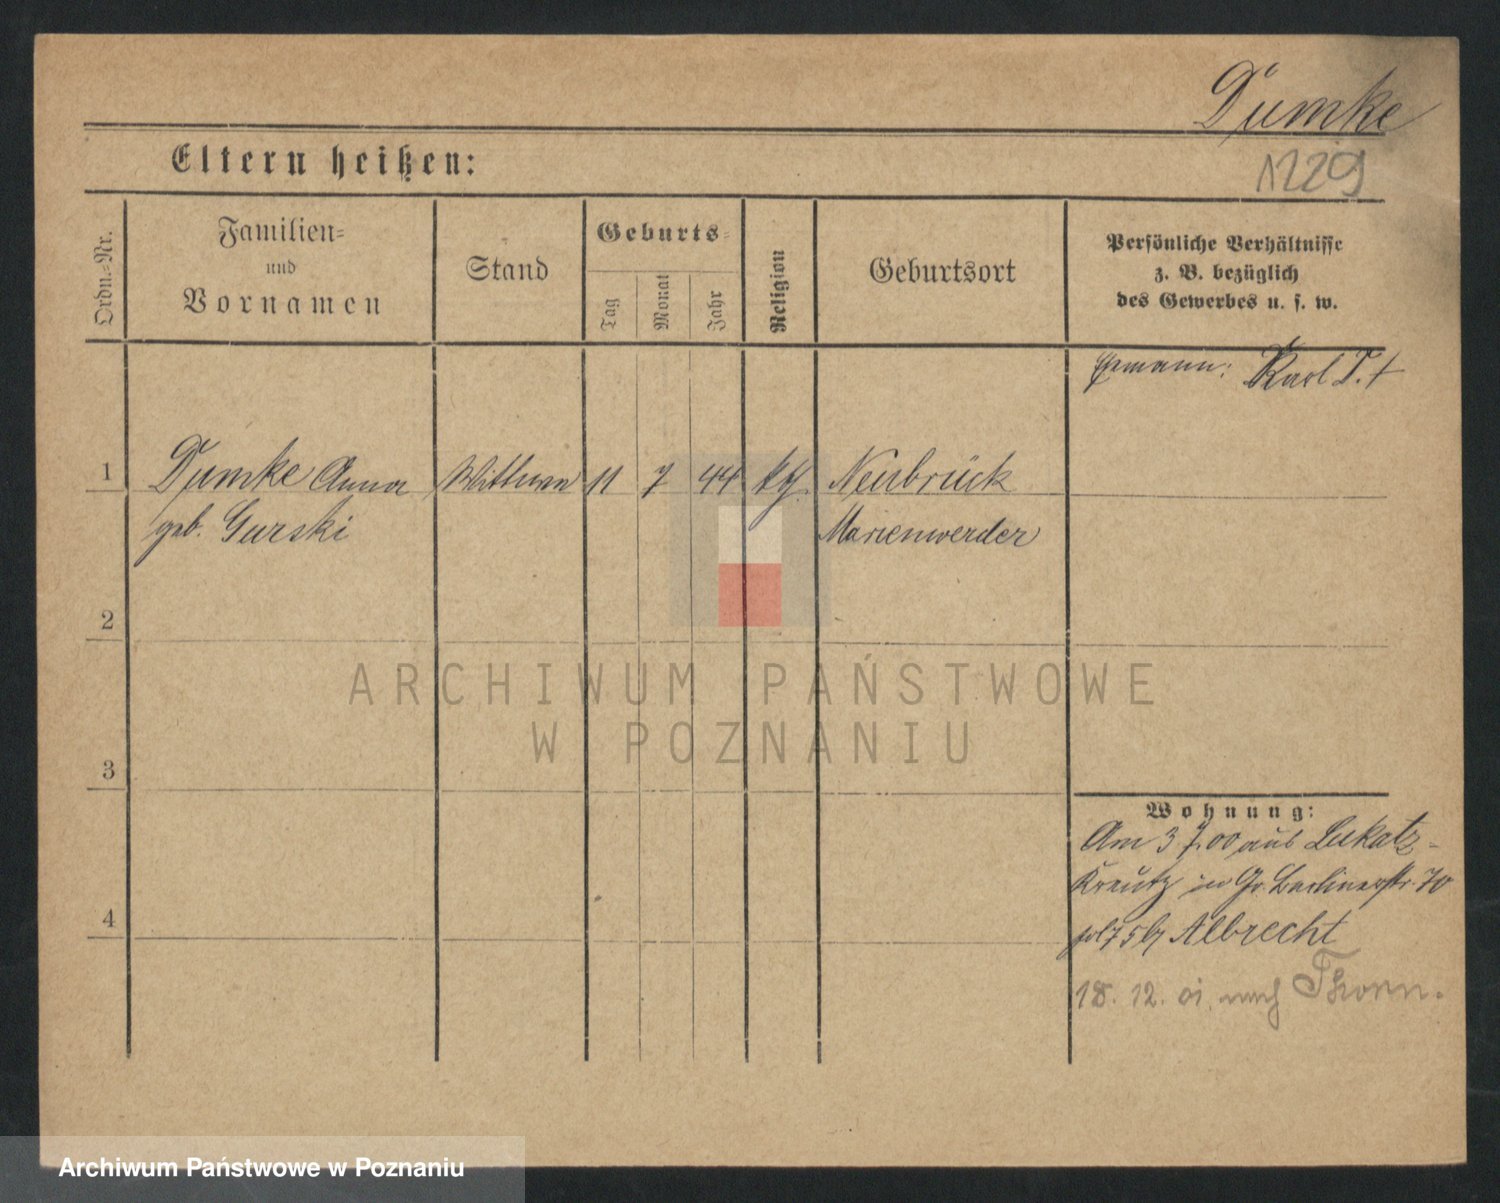 Dumke
1229
Eltern heißen:
Ordn.-Nr.
Familien-
und
Vornamen
Stand
Geburts-
Tag
Monat
Jahr
Religion
Geburtsort
Persönliche Verhältnisse
z. B. bezüglich
des Gewerbes u. s. w.
Ehemann: Karl D. †
1 Dumke Anna Wittwe 11 7 44 Neubrück
geb. Gurski Marienwerder
2
3
4
Wohnung:
Am 3 7.00 aus Lukatz-
Kreutz in Gr. Berlinerstr. 70
Albrecht
18. 12. 01. nach Thorn.
ARCHIWUM PAŃSTWOWE
W POZNANIU
Archiwum Państwowe w Poznaniu